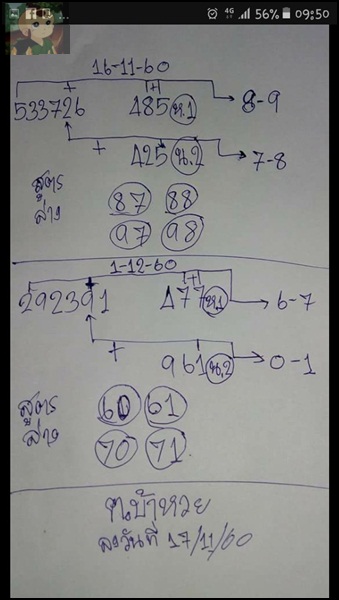 4G 56% 09:50
16-11-60
533726 485 ห.1 8-9
+ 425 น.2 7-8
สูตร 87 88
ล่าง 97 98
1-12-60
292391 477 ห.1 6-7
+ 961 น.2 0-1
สูตร 60 61
ล่าง 70 71
ฅนบ้าหวย
ลงวันที่ 17/11/60